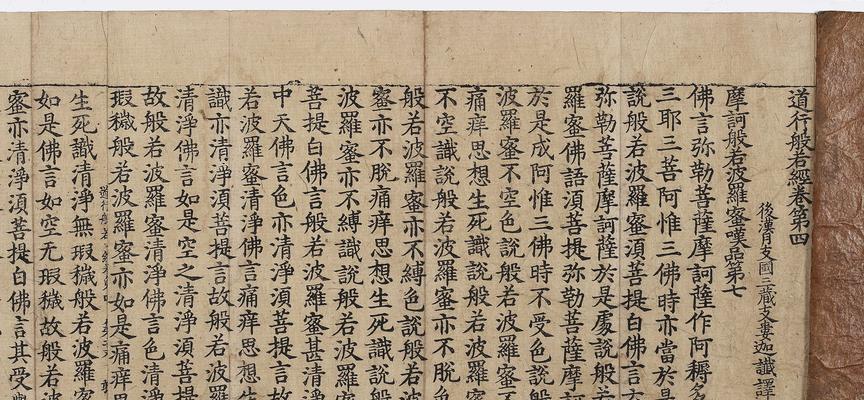 道行般若經卷第四
後漢月支國三藏支婁迦讖譯
摩訶般若波羅蜜嘆品第七
佛言弥勒菩薩摩訶薩作阿耨多
三耶三菩阿惟三佛時亦當於是
說般若波羅蜜須菩提白佛言
弥勒菩薩摩訶薩於是處說般若
羅蜜佛語須菩提弥勒菩薩摩訶
於是成阿惟三佛時不受色說般
波羅蜜不空色說般若波羅蜜不
痛痒思想生死識說般若波羅蜜
不空識說般若波羅蜜亦不脫色
般若波羅蜜亦不縛色說般若波
蜜亦不脫痛痒思想生死識說般
波羅蜜亦不縛識說般若波羅蜜
菩提白佛言般若波羅蜜甚清淨
中天佛言色亦清淨須菩提言故
若波羅蜜清淨佛言痛痒思想生
識亦清淨須菩提言故般若波羅
清淨佛言如是空之清淨須菩提
故般若波羅蜜清淨佛言色清淨
瑕穢般若波羅蜜亦如是痛痒思
道行般若
生死識清淨無瑕穢般若波羅蜜
如是佛言如空无瑕穢故般若波
蜜亦清淨須菩提白佛言其受